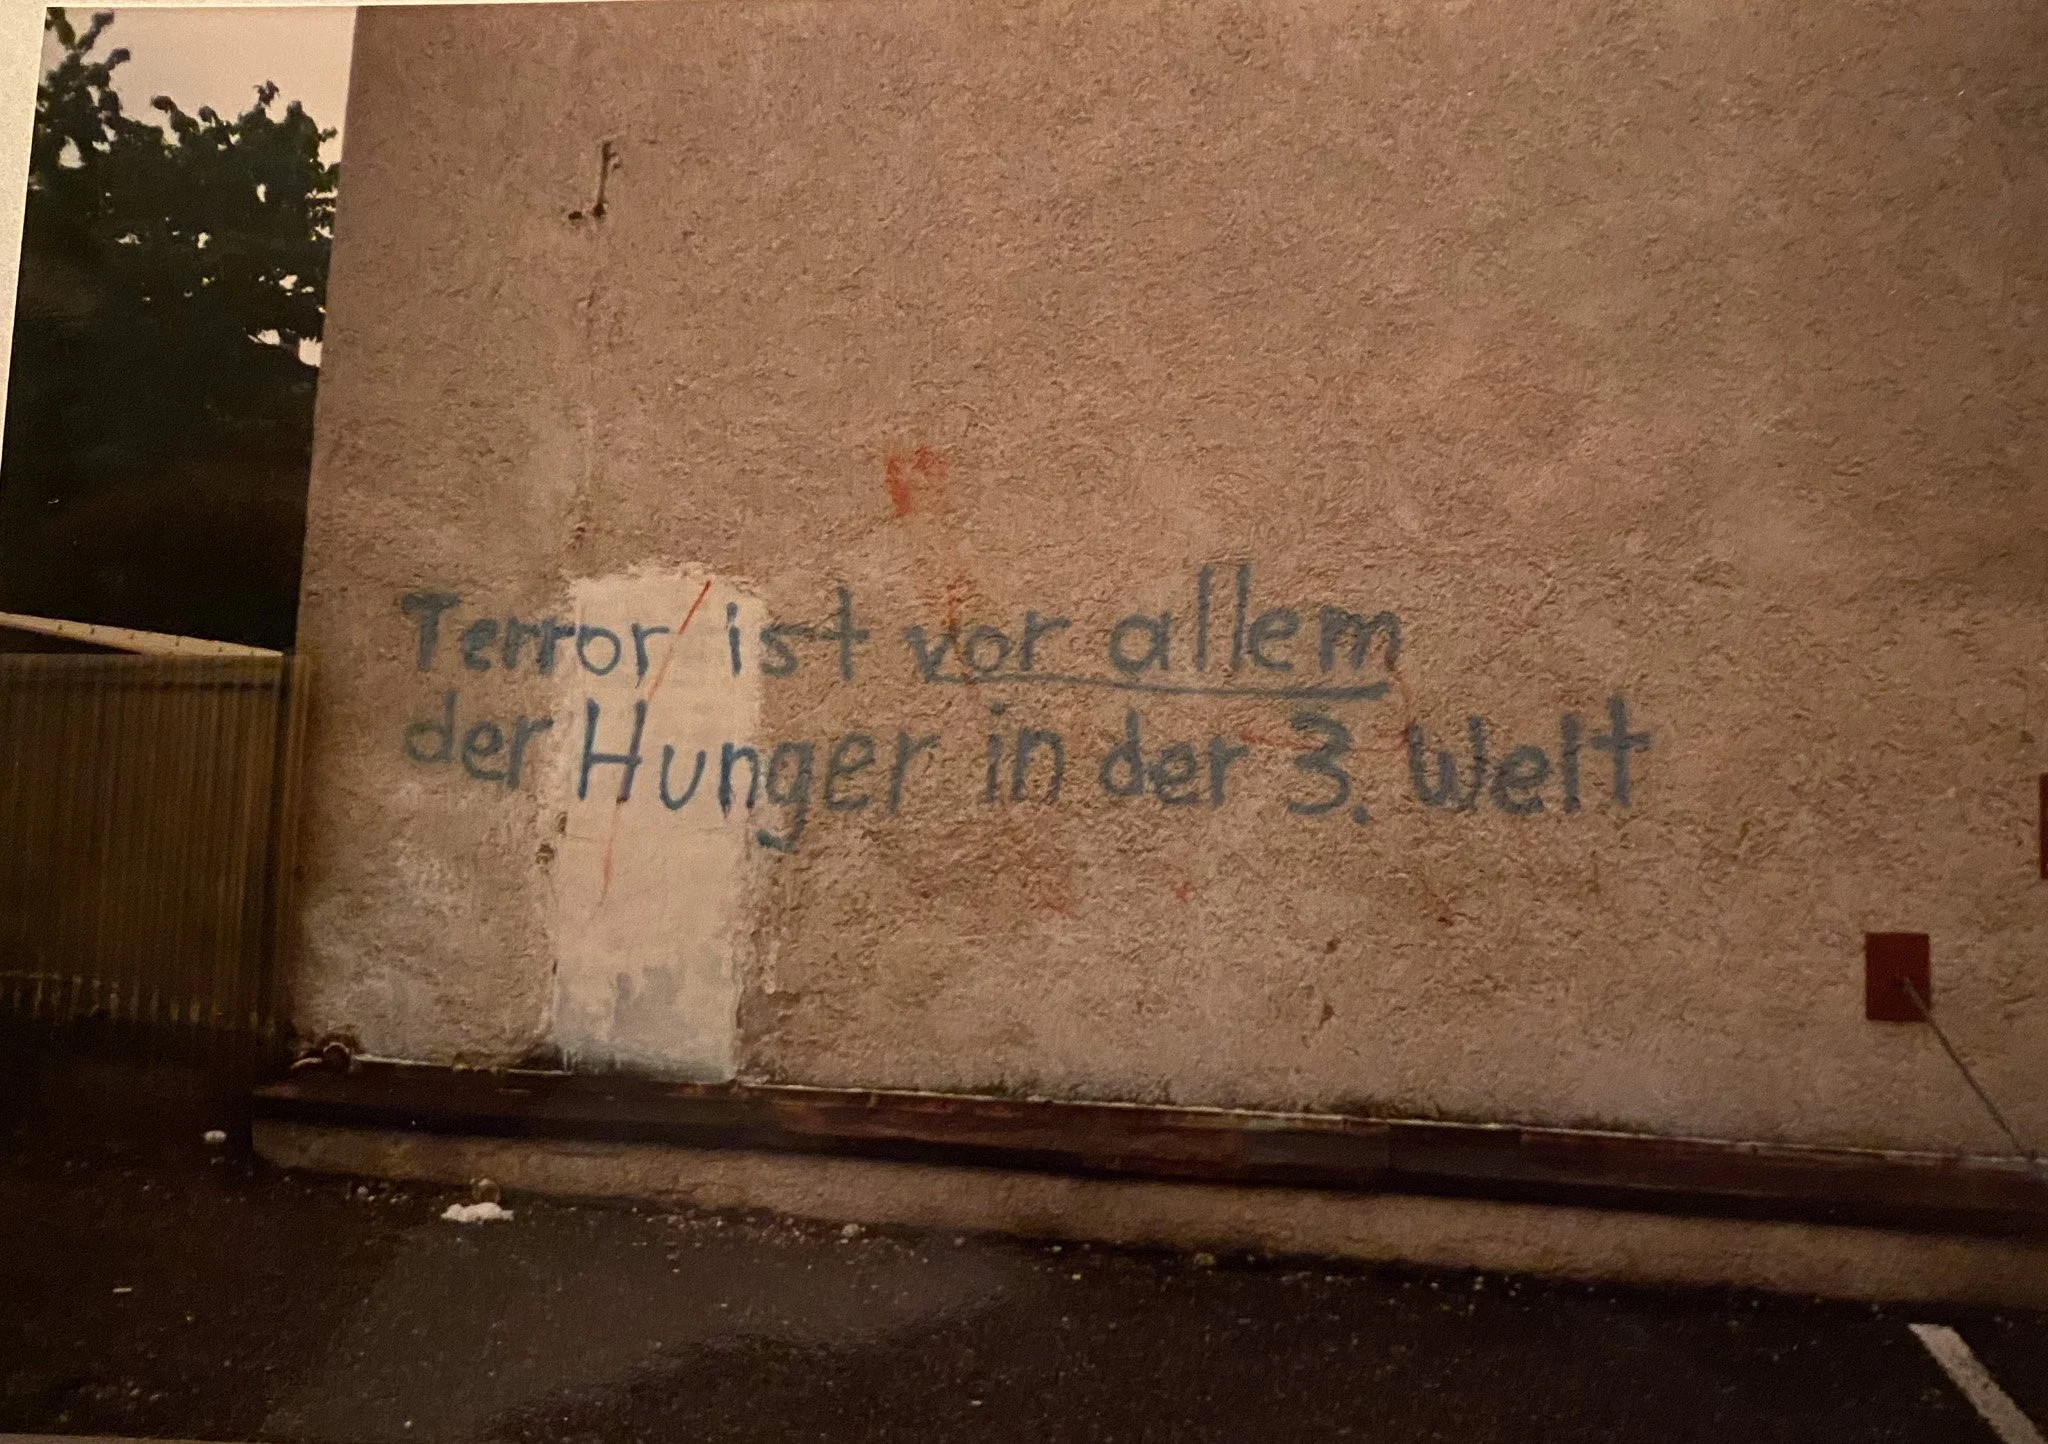 Terror ist vor allem
der Hunger in der 3. Welt